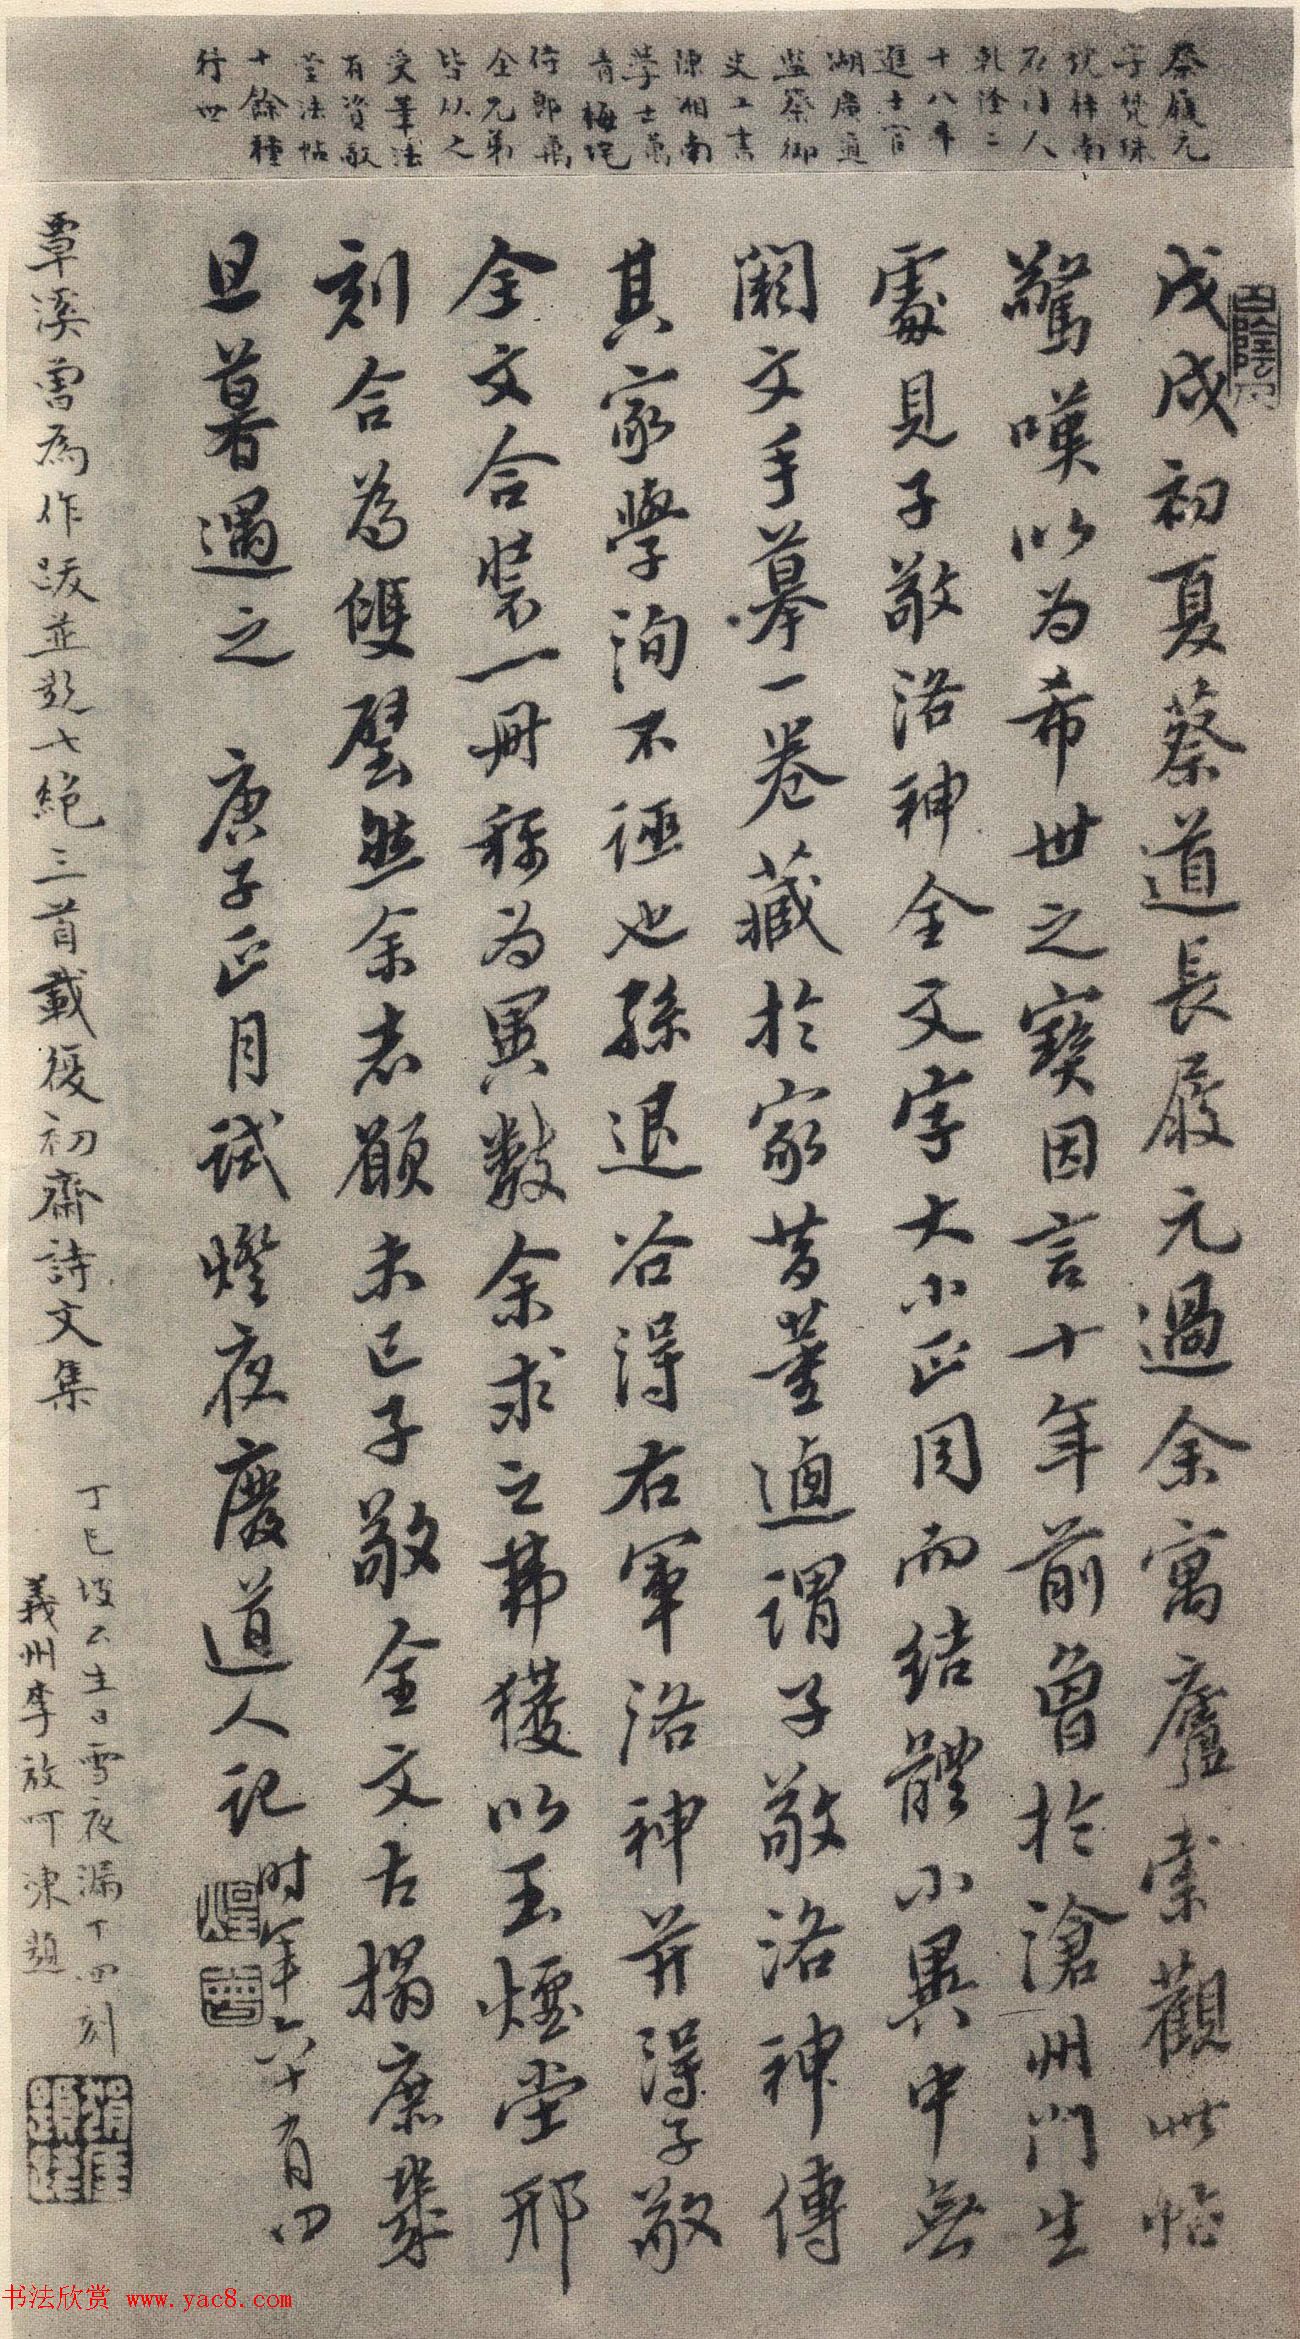 蔡履元
字梵珠
號梓南
石門人
乾隆二
十八年
進士官
湖廣道
監察御
史工書
陳湘南
學士萬
青梅垞
侍郎與
全兄弟
皆從之
受筆法
有資敬
堂法帖
十餘種
行世
戊戌初夏蔡道長履元過余寓廬索觀此帖
驚嘆以为希世之寶因言十年前曾於滄州門生
處見子敬洛神全文字大小正同而结體小異中無
闕文手摹一卷藏於家昔董逌謂子敬洛神傳
其家學洵不誣也孫退谷淂右軍洛神并淂子敬
全文合裝一冊稱为異數余求之弗獲以玉煙堂邢
刻合為雙璧然余志願未已子敬全文古搨庶幾
旦暮遇之 庚子正月試燈夜慶道人記
时年六十有四
覃溪曾為作跋並題七絕三首載復初齋詩文集
丁巳坡公生日雪夜漏下四刻
義州李放呵凍題
书法欣赏 www.yac8.com